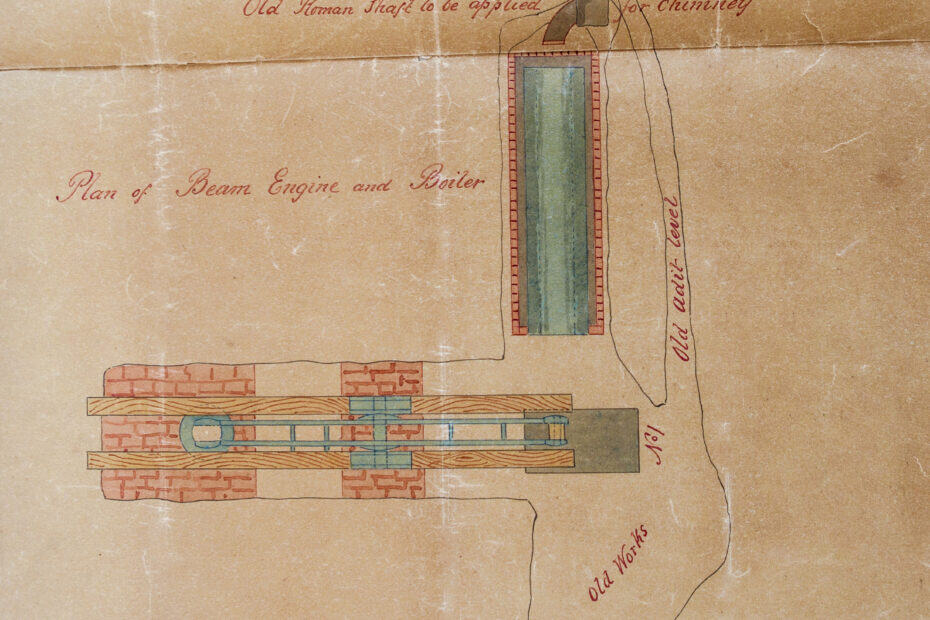 Old Roman Shaft to be applied for chimney
Plan of Beam Engine and Boiler
Old adit level
No1
Old Works